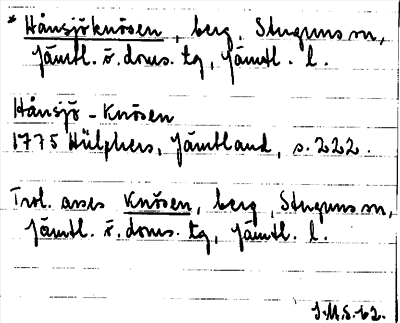 * Hånsjöknösen, berg, Stuguns sn,
Jämtl. ö. doms. tg, Jämtl. l.
Hånsjö-Knösen
1775 Hülphers, Jämtland, s. 222.
Trol. avses Knösen, berg, Stuguns sn,
Jämtl. ö. doms. tg, Jämtl. l.
J.M.S. 62.